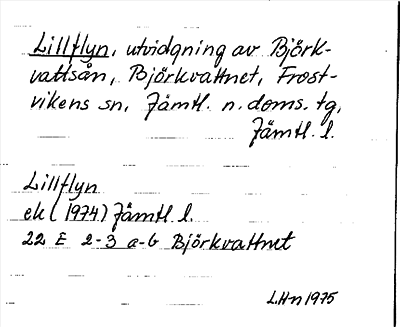 Lillflyn, utvidgning av Björk-
vattsån, Björkvattnet, Frost-
vikens sn, Jämtl. n. doms. tg,
Jämtl. l.
Lillflyn
ek (1974) Jämtl. l.
22 E 2-3 a-b Björkvattnet
LHn 1975